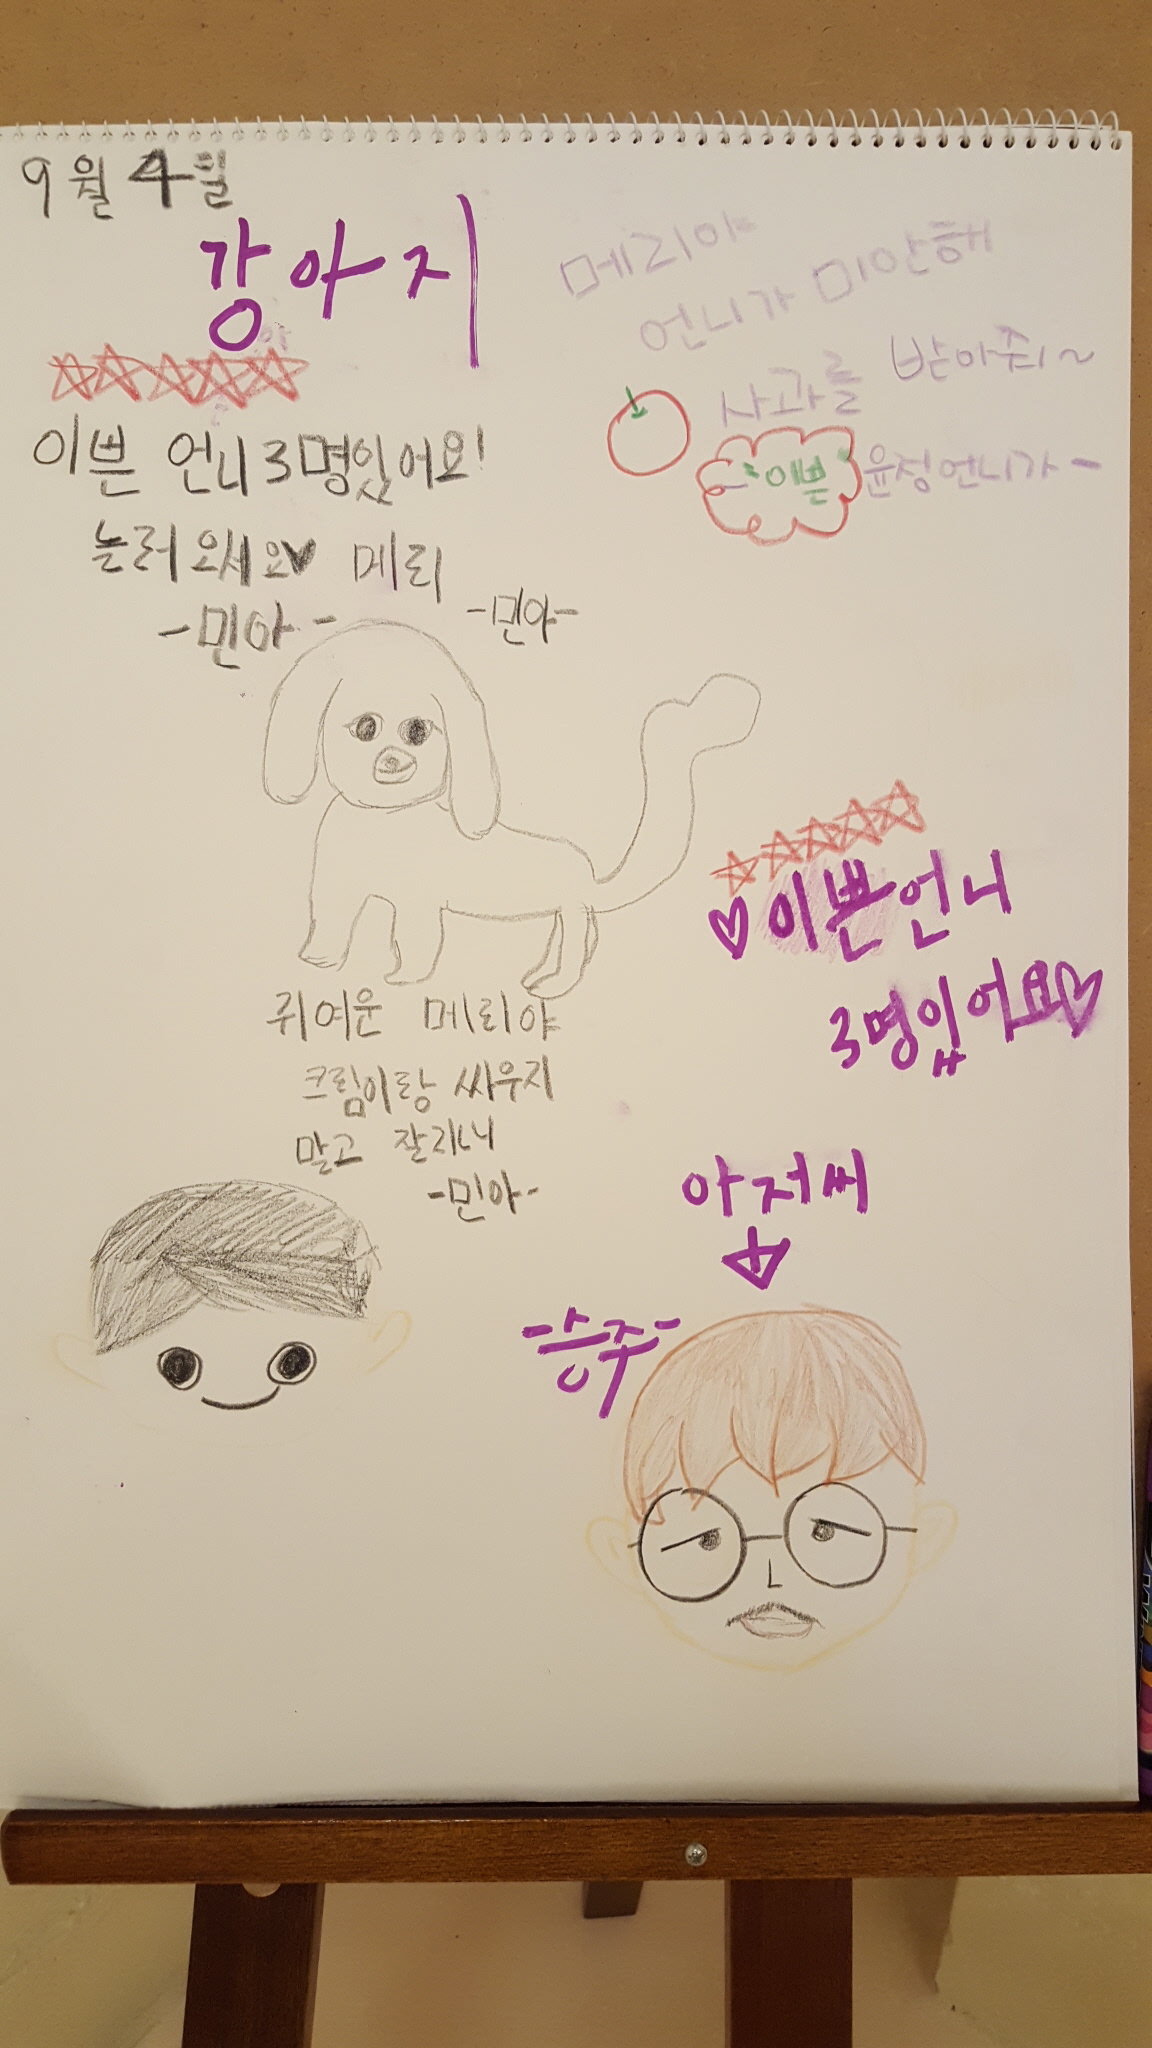 9월 4일
강아지
메리야
언니가 미안해
사과를 받아줘~
"이쁜" 윤정언니가-
이쁜 언니3명있어요!
놀러 오세요♥ 메리
-민아-
-민아-
♡이쁜언니
3명있어요♡
귀여운 메리야
크림이랑 싸우지
말고 잘지내
-민아-
아저씨
-승주-